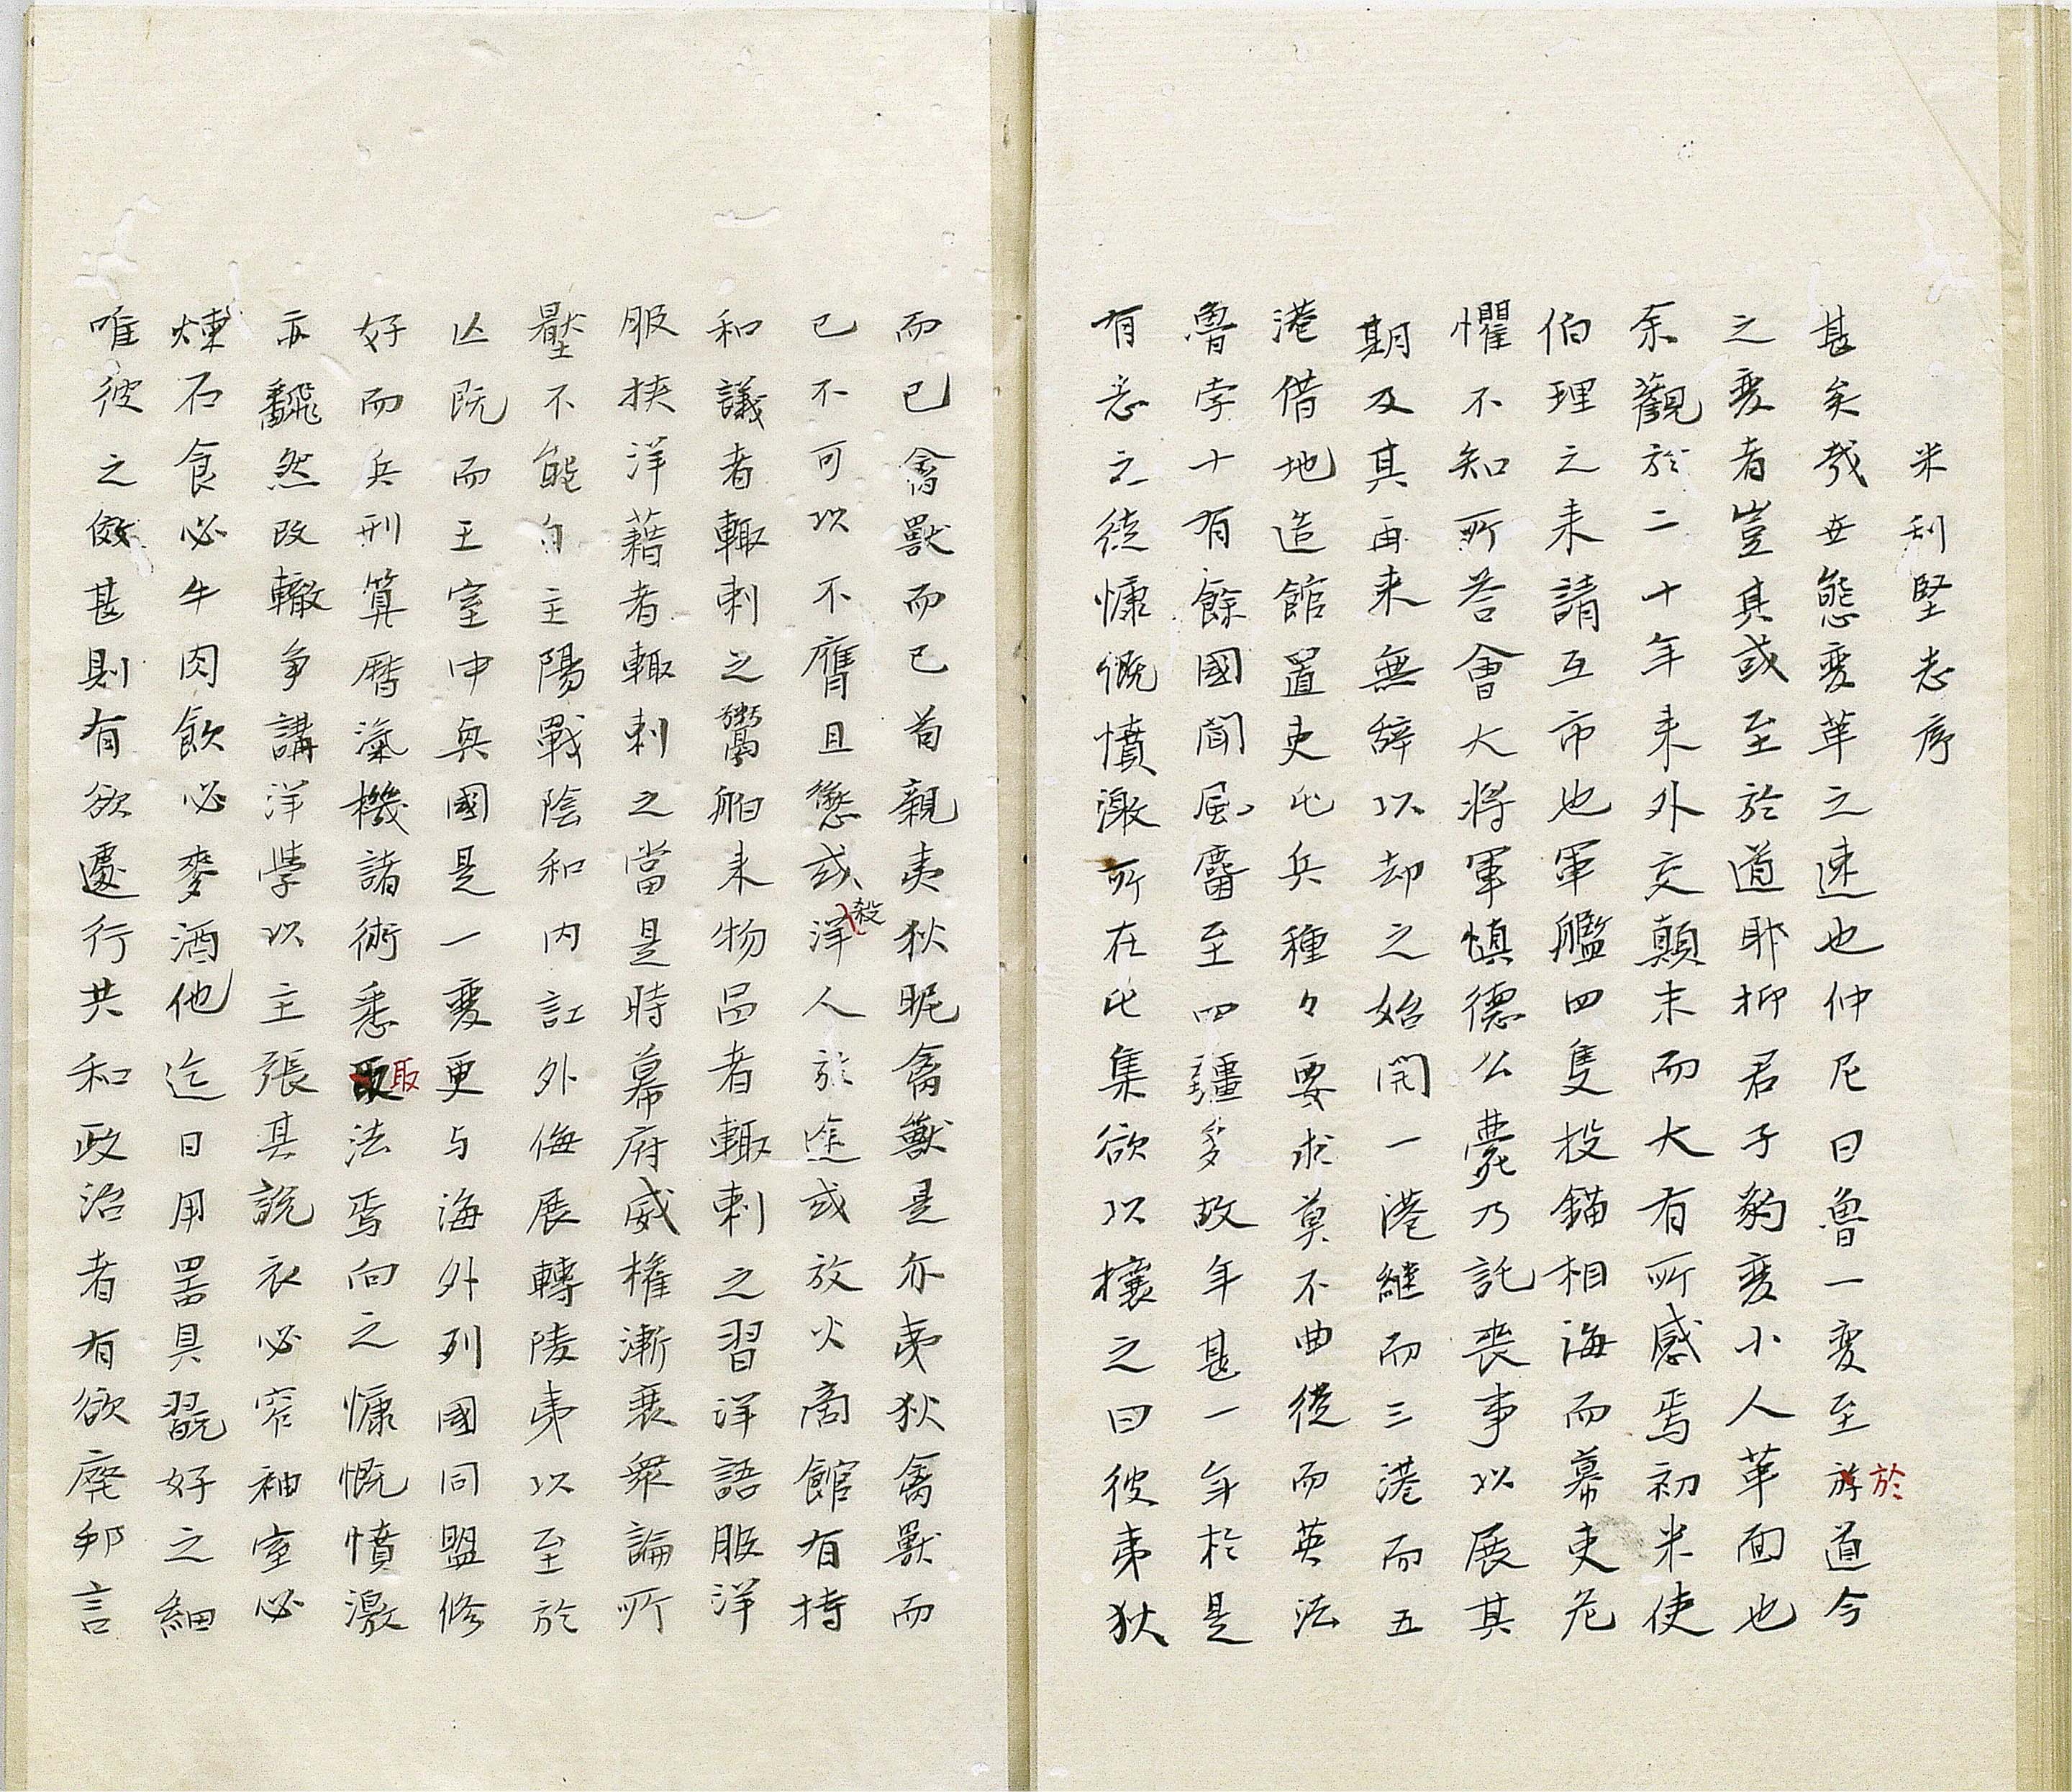 米利堅志序
甚矣哉世態変革之速也仲尼曰魯一変至於道今
之変者豈其或至於道耶抑君子豹変小人革面也
余觀於二十年来外交顛末而大有所感焉初米使
伯理之来請互市也軍艦四隻投錨相海而幕吏危
懼不知所答會大将軍慎德公薨乃託喪事以展其
期及其再来無辞以却之始開一港継而三港而五
港借地造館置吏屯兵種々要求莫不曲従而英法
魯孛十有餘國聞風麕至四疆多故年甚一年於是
有志之徒慷慨憤激所在屯集欲以攘之曰彼夷狄
而已禽獸而已苟親夷狄昵禽獣是亦夷狄禽獸而
已不可以不膺且懲或殺洋人於途或放火商館有持
和議者輙刺之鬻舶来物品者輙刺之習洋語服洋
服挟洋藉者輙刺之當是時幕府威権漸衰衆論所
壓不能自主陽戰陰和内訌外侮展轉陵夷以至於
亾既而王室中興國是一變更与海外列國同盟修
好而兵刑算暦滊機諸術悉取法焉向之慷慨憤激
亦飜然改轍争講洋学以主張其説衣必窄袖室必
煉石食必牛肉飲必麥酒他迄日用器具翫好之細
唯彼之倣甚則有欲遽行共和政治者有欲廃邦言